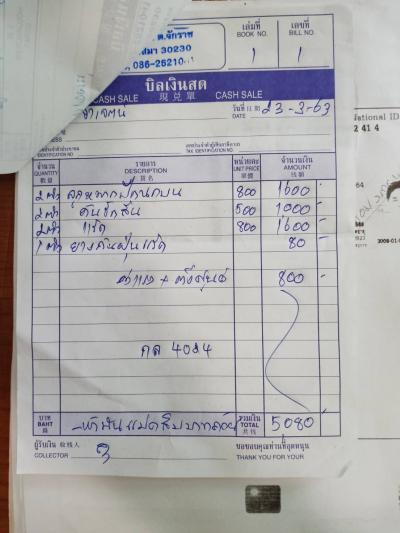 ต.จักราช
30230
086-25210
เล่มที่
BOOK NO.
1
เลขที่
BILL NO.
1
บิลเงินสด
CASH SALE 現兌單 CASH SALE
วันที่
DATE 23-3-63
TAX IDENTIFICATION NO.
จำนวน
QUANTITY
數量
รายการ
DESCRIPTION
หน่วยละ
UNIT PRICE
จำนวนเงิน
AMOUNT
2 ตัว ลูกหมากปีกนกบน 800 1600 -
2 ตัว คันชักสั้น 500 1000 -
2 ตัว แร็ค 800 1600 -
1 ตัว ยางกันฝุ่นแร็ค 80 -
ค่าแรง + ตั้งศูนย์ 800 -
กล 4084
บาท
BAHT
-ห้าพันแปดสิบบาทถ้วน-
รวมเงิน
TOTAL
5080
ผู้รับเงิน 收銀人
COLLECTOR
ขอขอบคุณท่านที่อุดหนุน
THANK YOU FOR YOUR
National ID
2 41 4